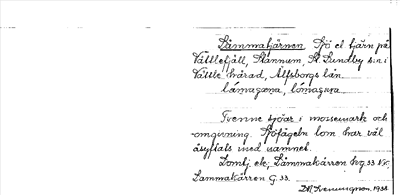 Lämmatjärnen, Sjö el. tjärn på
Vättlefjäll, Stannum, St. Lundby s:n i
Vättle härad, Älfsborgs län.
lámagæna, lómagæna
Tvenne sjöar i mossemark och
omgivning. Sjöfågeln lom har väl
åsyftats med namnet.
Lomtj. ek, Lämmakärren hvg. 33 Vbr.
Lammakärren G. 33.
1938.